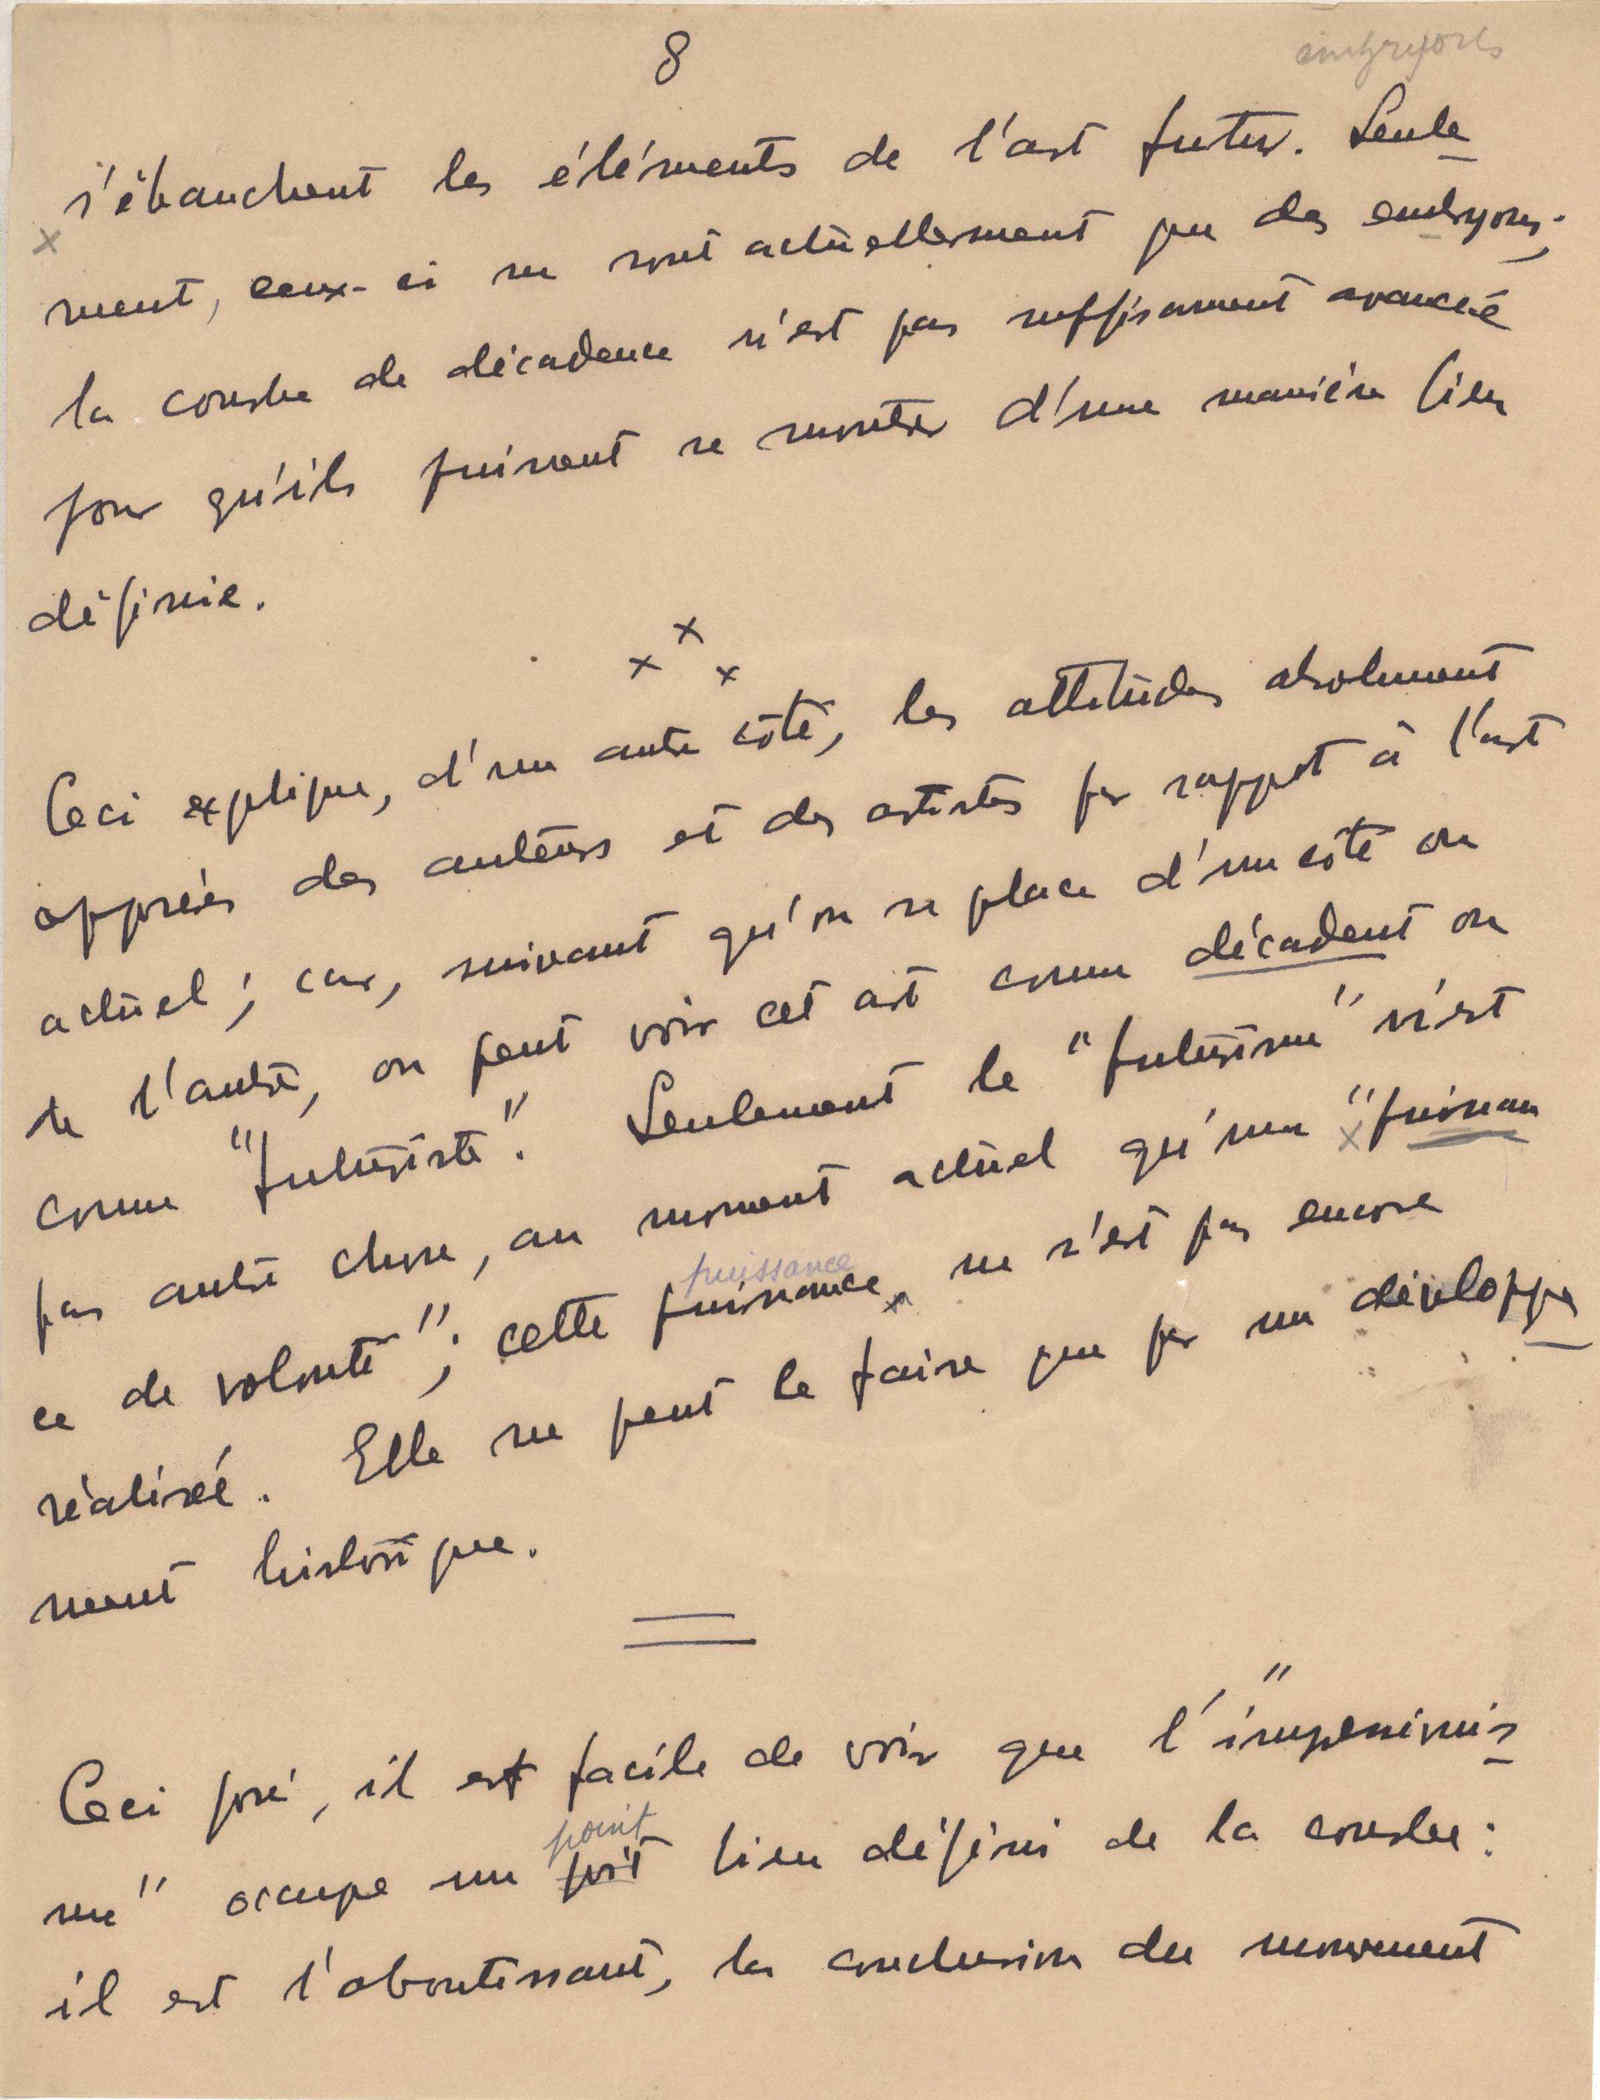 8
embryons
s'ébauchent les éléments de l'art futur. Seule
ment, ceux-ci ne sont actuellement que des embryons;
la courbe de décadence n'est pas suffisament avancée
pour qu'ils puissent se montrer d'une manière bien
définie.
x x x
Ceci explique, d'un autre côté, les attitudes absolument
opposées des auteurs et des artistes par rapport à l'art
actuel; car, suivant qu'on se place d'un côté ou
de l'autre, on peut voir cet art comme décadent ou
comme "futuriste". Seulement le "futurisme" n'est
pas autre chose, au moment actuel qu'une "puissan
ce de volonté"; cette puissance ne s'est pas encore
puissance
réalisée. Elle ne peut le faire que par un développe
ment historique.
Ceci posé, il est facile de voir que l'"impressionnis
me" occupe un point bien défini de la courbe:
point
il est l'aboutissant, la conclusion du mouvement